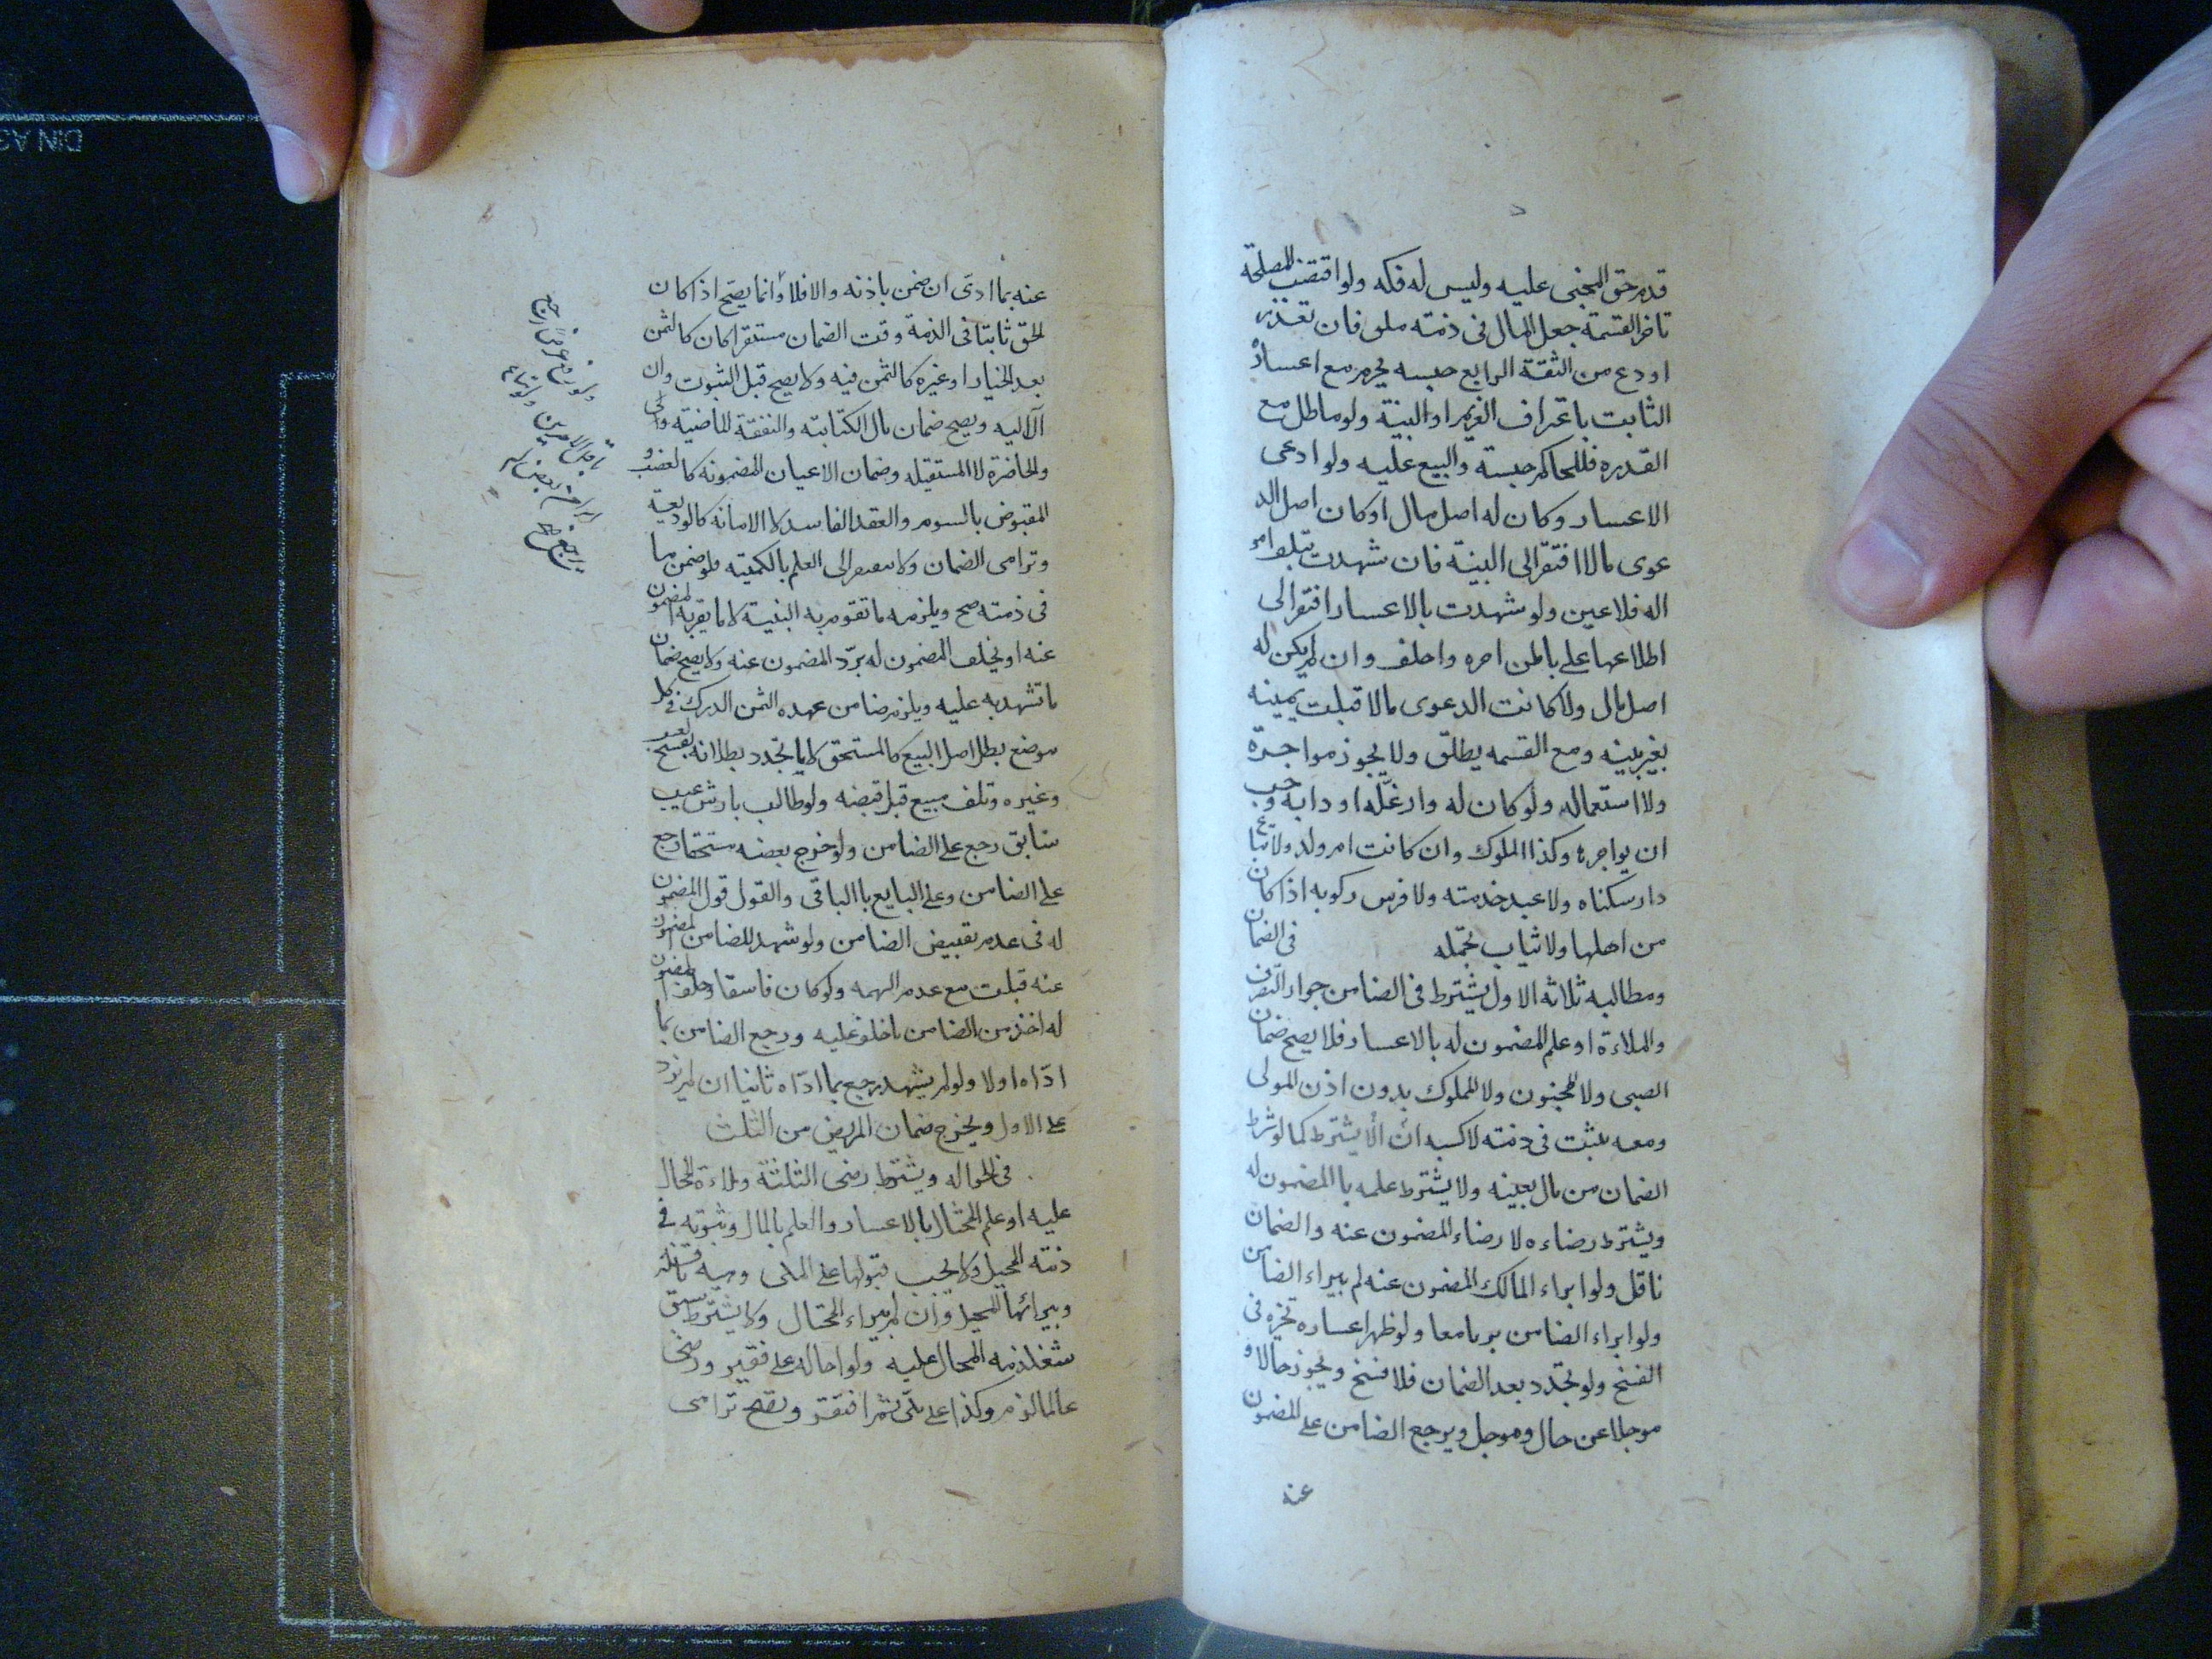 قدم حق المجنى عليه وليس له فكه ولو اقتضت المصلحة
تاخر القسمة جعل المال فى ذمته ملى فان تعذر
اودع من الثقة الرابع حبسه يحرم مع اعساره
الثابت باعتراف الغريم او البينة ولو ماطل مع
القدره فللحاكم حبسته والبيع عليه ولو ادعى
الاعسار وكان له اصل مال او كان اصل الد
عوى مالا افتقر الى البينة فان شهدت بتلف امو
اله فلا عين ولو شهدت بالاعسار افتقر الى
اطلاعها على باطن امره واحلف وان لم يكن له
اصل مال ولا كانت الدعوى مالا قبلت يمينه
بغير بينه ومع القسمه يطلق ولا يجوز مواجرة
ولا استعماله ولو كان له دار غله او دابة وجب
ان يواجرها وكذا المملوك وان كانت ام ولد ولا تباع
دار سكناه ولا عبد خدمته ولا فرس ركوبه اذا كان
من اهلها ولا ثياب تجمله فى الضمان
ومطالبه ثلاثة الاول يشترط فى الضامن جواز التصرف
والملاءة او علم المضمون له بالاعسار فلا يصح ضمان
الصبى ولا المجنون ولا المملوك بدون اذن المولى
ومعه يثبت فى ذمته لا كسبه الا ان يشترط كما لو شرط
الضمان من مال بعينه ولا يشترط علمه باالمضمون له
ويشترط رضاءه لا رضاء المضمون عنه والضمان
ناقل ولو ابراء المالك المضمون عنه لم يبراء الضامن
ولو ابراء الضامن بريا معا ولو ظهر اعساره تخير فى
الفسخ ولو تجدد بعد الضمان فلا فسخ ويجوز حالا و
موجلا عن حال وموجل ويرجع الضامن على المضمون
عنه
عنه بما ادى ان ضمن باذنه والا فلا وانما يصح اذا كان
الحق ثابتا فى الذمة وقت الضمان مستقرا كان كالثمن
بعد الخيار او غيره كالثمن فيه ولا يصح قبل الثبوت وان
آل اليه ويصح ضمان مال الكتابته والنفقة الماضيه
والحاضرة لا المستقبله وضمان الاعيان المضمونه كالغصب و
المقبوض بالسوم والعقد الفاسد لا الامانه كالوديعة
وترامى الضمان ولا يفتقر الى العلم بالكمية فلو ضمن ما
فى ذمته صح ويلزمه ما تقوم به البينة لا ما يقر به المضمون
عنه او يحلف المضمون له برد المضمون عنه ولا يصح ضمان
ما تشهد به عليه ويلزم ضامن عهده الثمن الدرك فى كل
موضع بطل اصل البيع كالمستحق لا ما تجدد بطلانه كفسخ
وغيره وتلف مبيع قبل قبضه ولو طالب بارش عيب
سابق رجع على الضامن ولو خرج بعضه مستحقا رجع
على الضامن وعلى البايع باالباقى والقول قول المضمون
له فى عدم تقبيض الضامن ولو شهد للضامن المضمون
عنه قبلت مع عدم التهمه ولو كان فاسقا وحلف المضمون
له اخذ من الضامن ما حلف عليه ورجع الضامن بما
اداه اولا ولو لم يشهد رجع بما اداه ثانيا ان لم يزد
على الاول ويخرج ضمان المريض من الثلث
فى الحواله ويشترط رضى الثلثة وملاءة المحال
عليه او علم المحتال بالاعسار والعلم بالمال وثبوته فى
ذمته المحيل ولا يجب قبولها على الملى وهى ناقلة
ويبرا بها المحيل وان لم يبراء المحتال ولا يشترط سبق
شغل ذمه المحال عليه ولو احاله على فقير ورضى
عالما لزم وكذا على ملى ثم افتقر ويصح ترامى